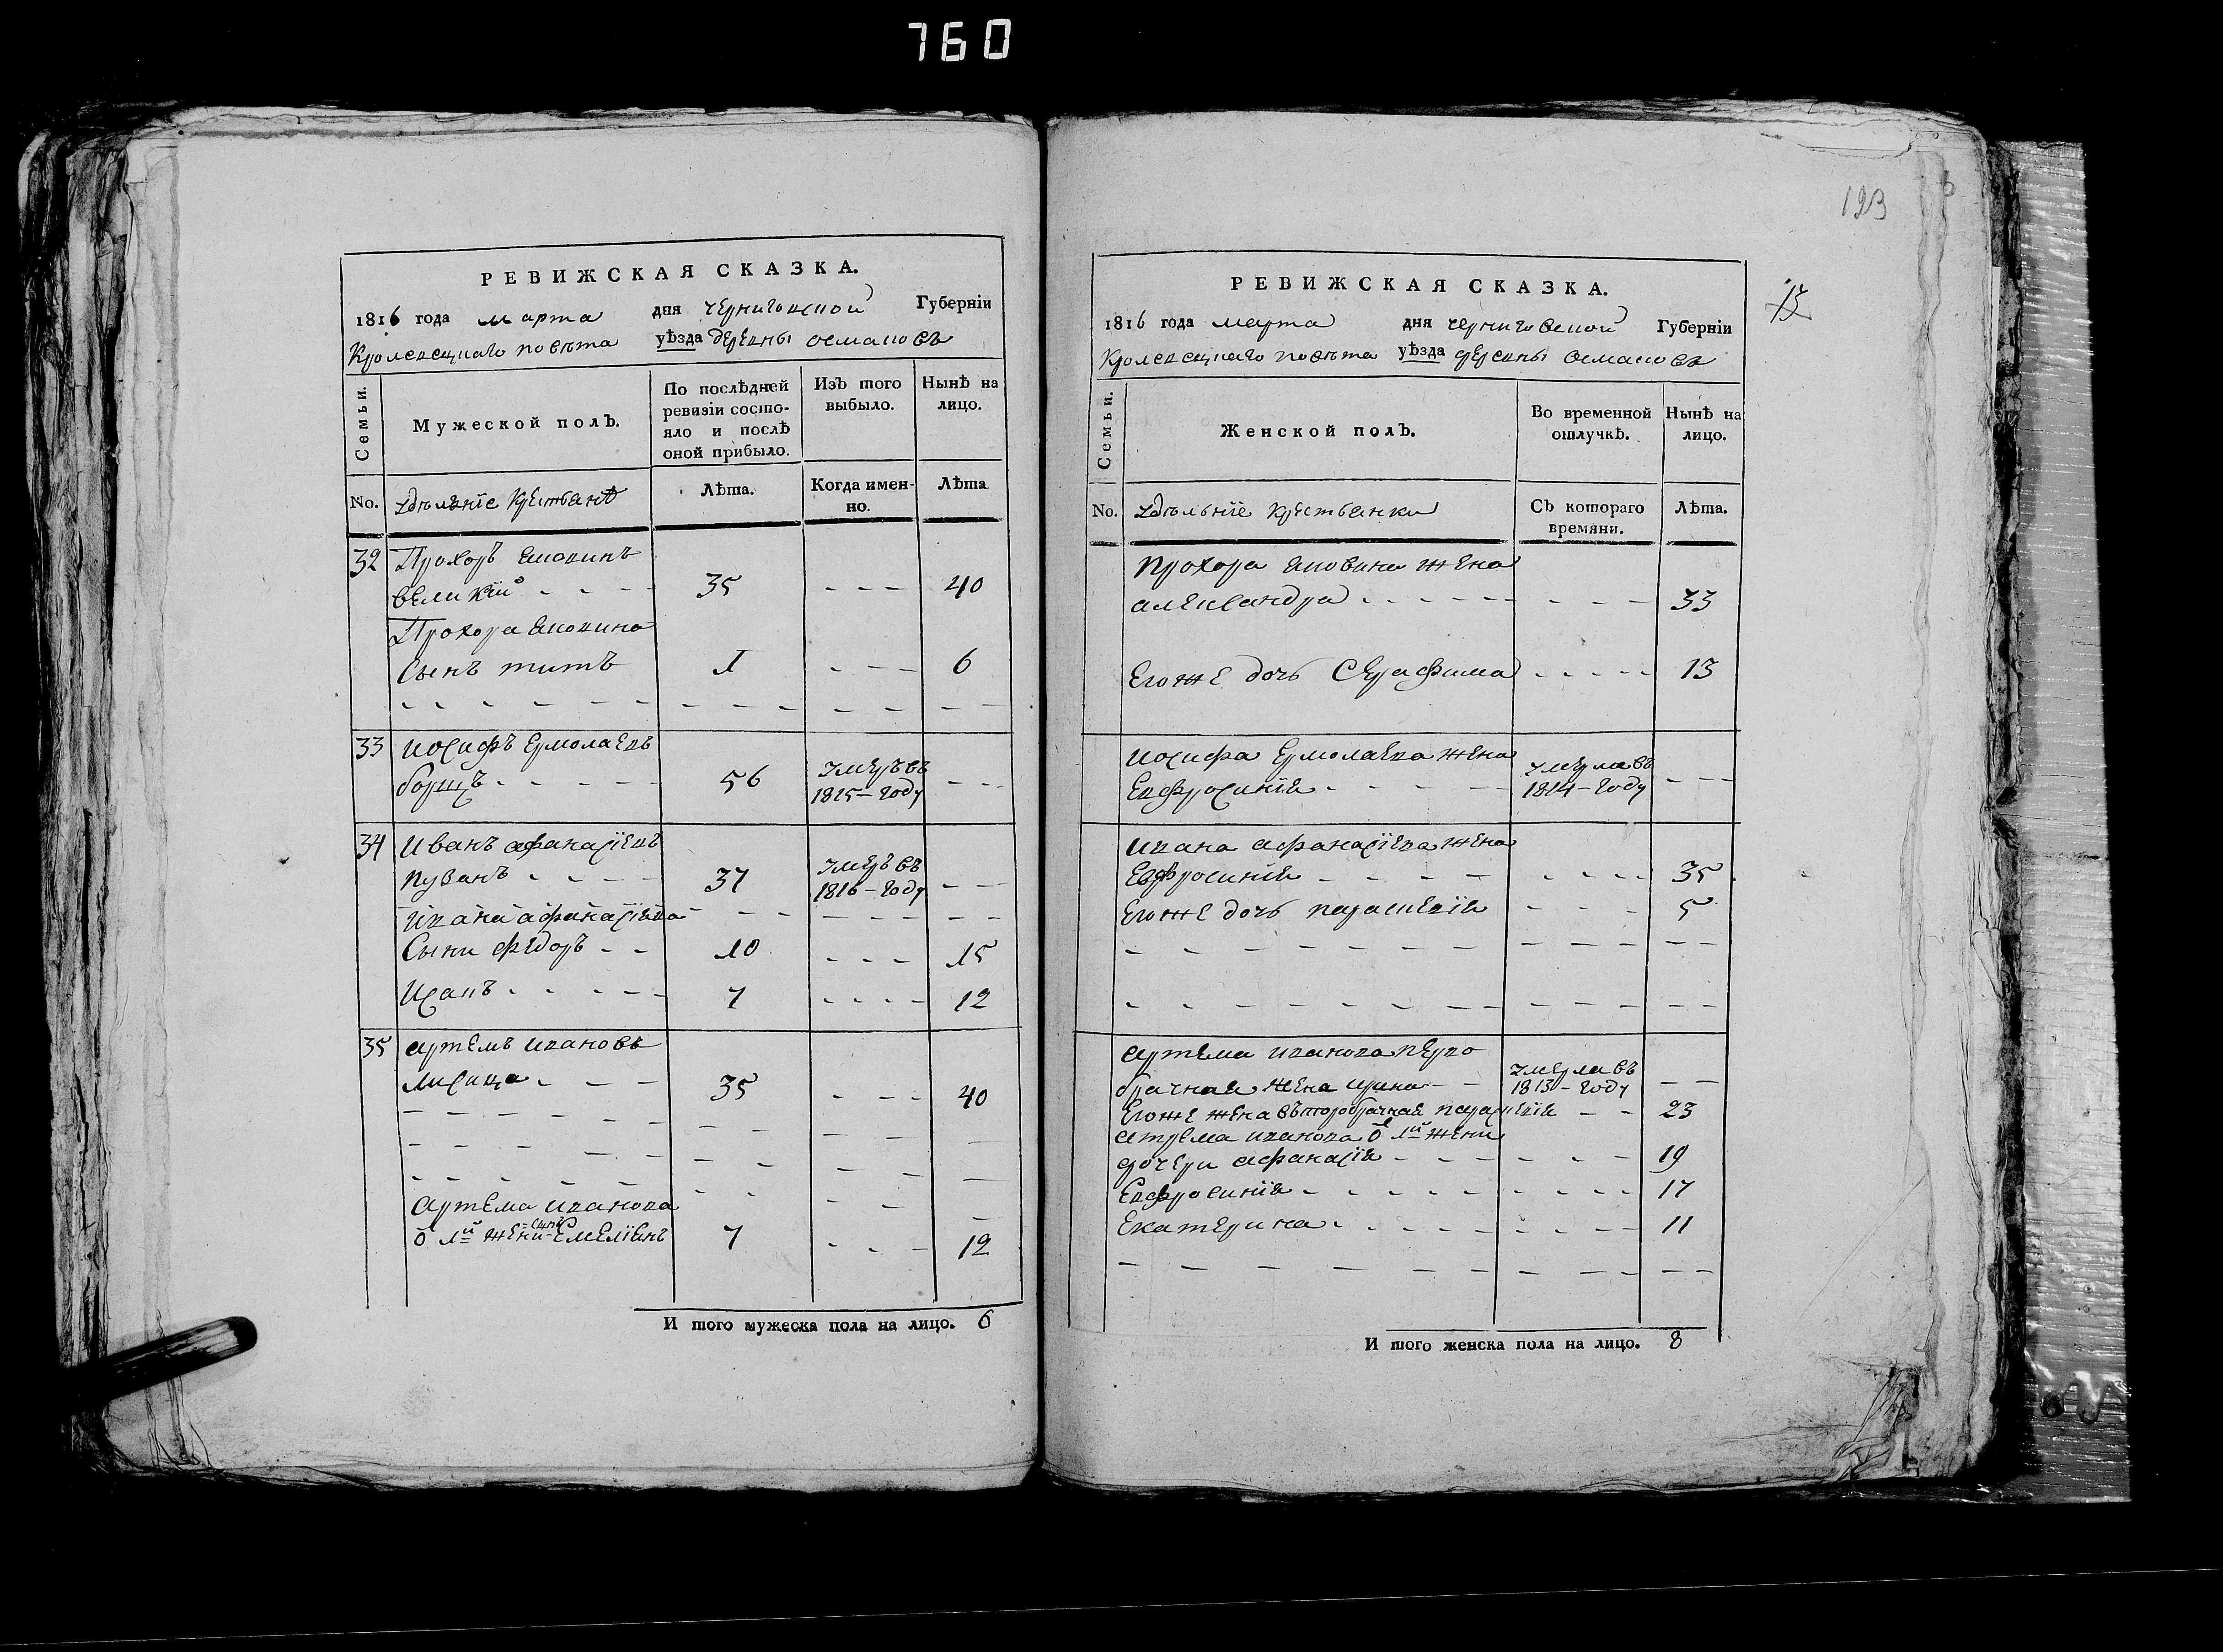 760
РЕВИЖСКАЯ СКАЗКА.
1816 года марта дня черниговской Губерніи
Кролевецкаго повѣта уѣзда деревны османовъ
Семьи.
Мужеской полъ.
По послѣдней ревизіи состояло и послѣ оной прибыло.
Изъ того выбыло.
Нынѣ на лицо.
No. удѣлніе крестьянѣ
Лѣта.
Когда именно.
Лѣта
32 Прохоръ
великій 35 40
Прохора
Сынъ титъ 1 6
33 иосифъ Ермолаевъ
борщъ 56 умеръ въ 1815 году
34 иванъ афанасіевъ
37 умеръ въ 1816 году
ивана афанасіева
Сыни федоръ 10 15
7 12
35 артемъ ивановъ
лисица 35 40
артема иванова
о 1й жени сынъ 7 12
И того мужеска пола на лицо. 6
123
15
РЕВИЖСКАЯ СКАЗКА.
1816 года марта дня черниговской Губерніи
Кролевецкаго повѣта уѣзда деревны османовъ
Семьи.
Женской полъ.
Во временной отлучкѣ.
Нынѣ на лицо.
No. удѣльніе крестьянки
Съ котораго времяни.
Лѣта.
прохора жена
александра 33
Егоже дочь Серафима 13
иосифа Ермолаева жена
Евфросинія умерла въ 1814 году
ивана афанасіева жена
Евфросинія 35
Егоже дочь параскевія 5
артема иванова перво
брачная жена ирина умерла въ 1813 году
Егоже жена въторобрачная параскевія 23
атрема иванова о 1й жени
дочери афанасія 19
Евфросинія 17
Екатерина 11
И того женска пола на лицо. 8